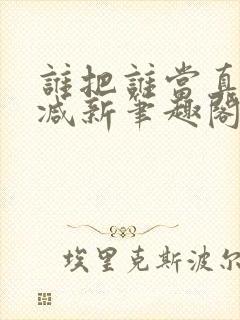 誰把誰當真
减新筆趣閣
埃里克斯波尔